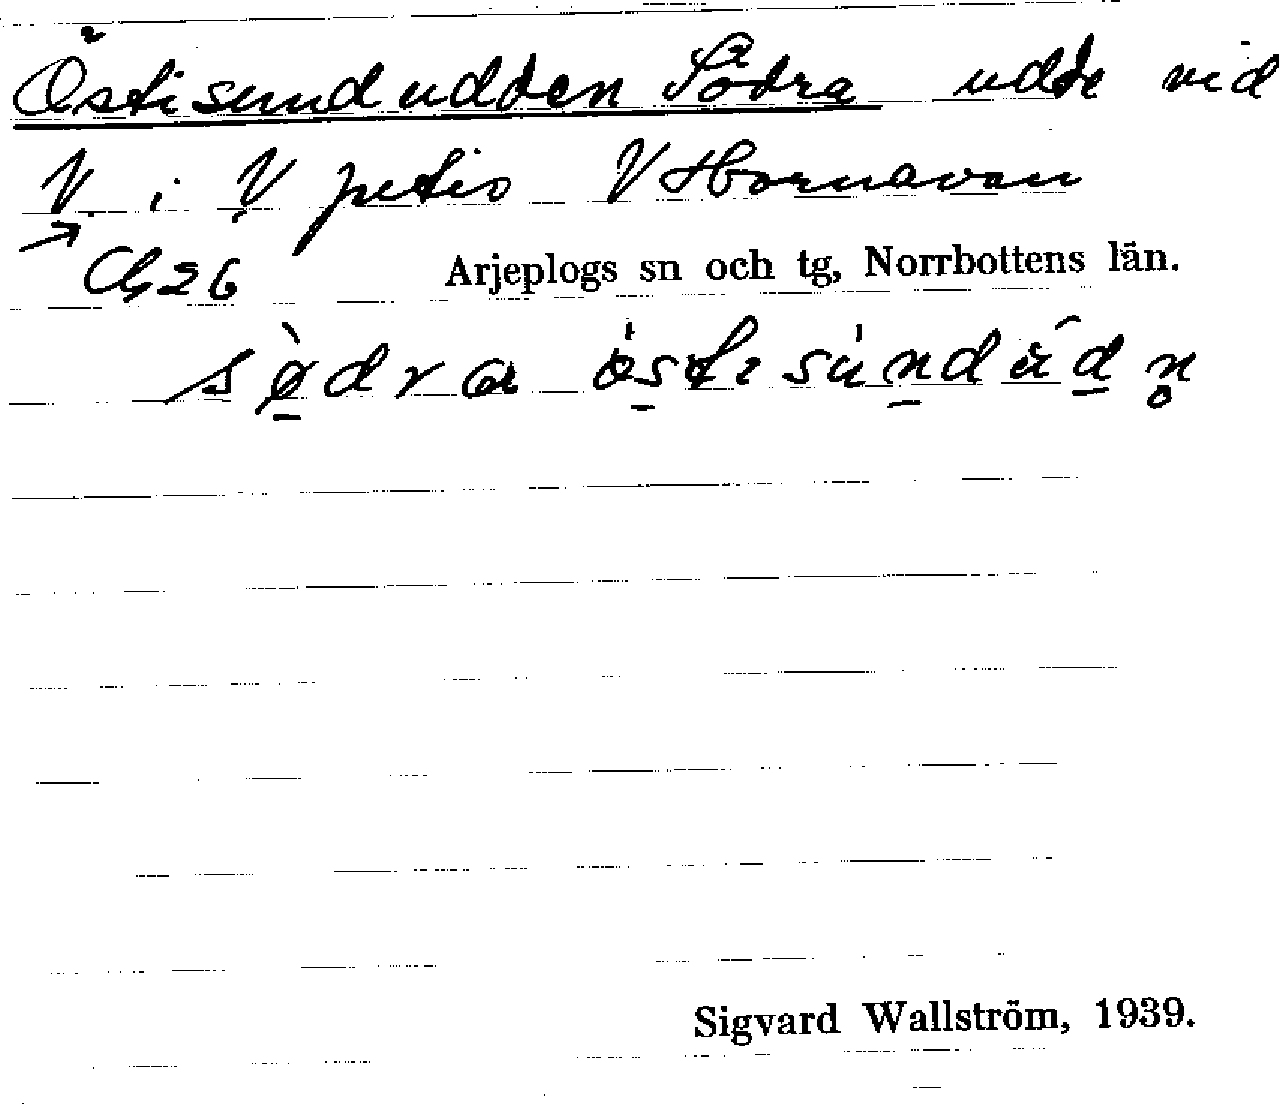 Östisundudden Södra udde vid
V. i V V Hornavan
26 Arjeplogs sn och tg, Norrbottens län.
sø̀dra östisúndúdn̥
Sigvard Wallström, 1939.